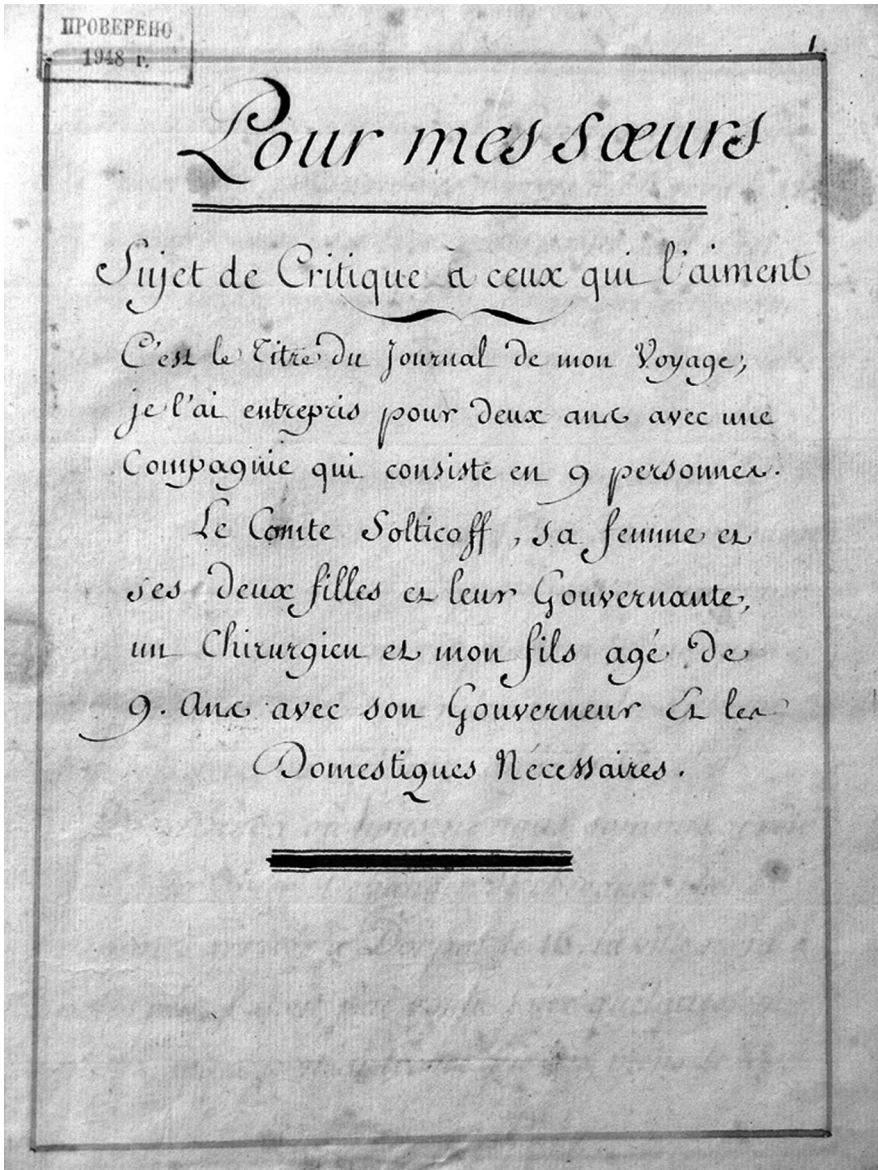 ПРОВЕРЕНО
1948 г.
1.
Pour mes sœurs
Sujet de Critique a ceux qui l'aiment
C'est le Titre du Journal de mon Voyage;
je l'ai entrepris pour deux ans avec une
Compagnie qui consiste en 9 personnes.
Le Comte Solticoff, sa femme et
ses deux filles et leur Gouvernante,
un Chirurgien et mon fils agé de
9. Ans avec son Gouverneur Et les
Domestiques Nécessaires.